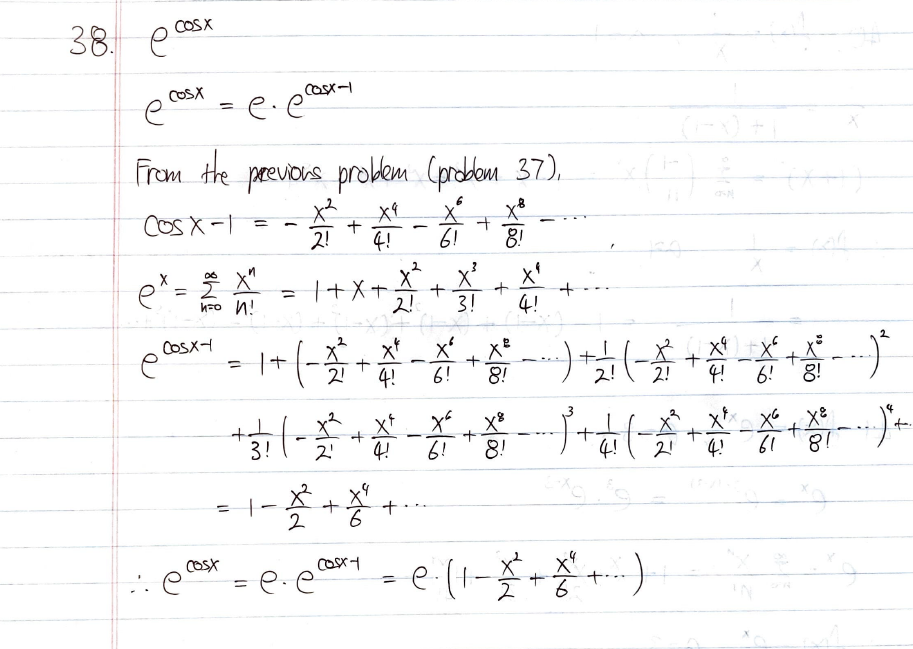 38. e^{cosx}
e^{cosx} = e · e^{cosx-1}
From the previous problem (problem 37),
cosx-1 = - x²/2! + x⁴/4! - x⁶/6! + x⁸/8! - ...
e^x = Σ_{n=0}^{∞} xⁿ/n! = 1 + x + x²/2! + x³/3! + x⁴/4! + ...
e^{cosx-1} = 1 + (- x²/2! + x⁴/4! - x⁶/6! + x⁸/8! - ...) + 1/2! (- x²/2! + x⁴/4! - x⁶/6! + x⁸/8! - ...)²
+ 1/3! (- x²/2! + x⁴/4! - x⁶/6! + x⁸/8! - ...)³ + 1/4! (- x²/2! + x⁴/4! - x⁶/6! + x⁸/8! - ...)⁴ + ...
= 1 - x²/2 + x⁴/6 + ...
∴ e^{cosx} = e · e^{cosx-1} = e · (1 - x²/2 + x⁴/6 + ...)